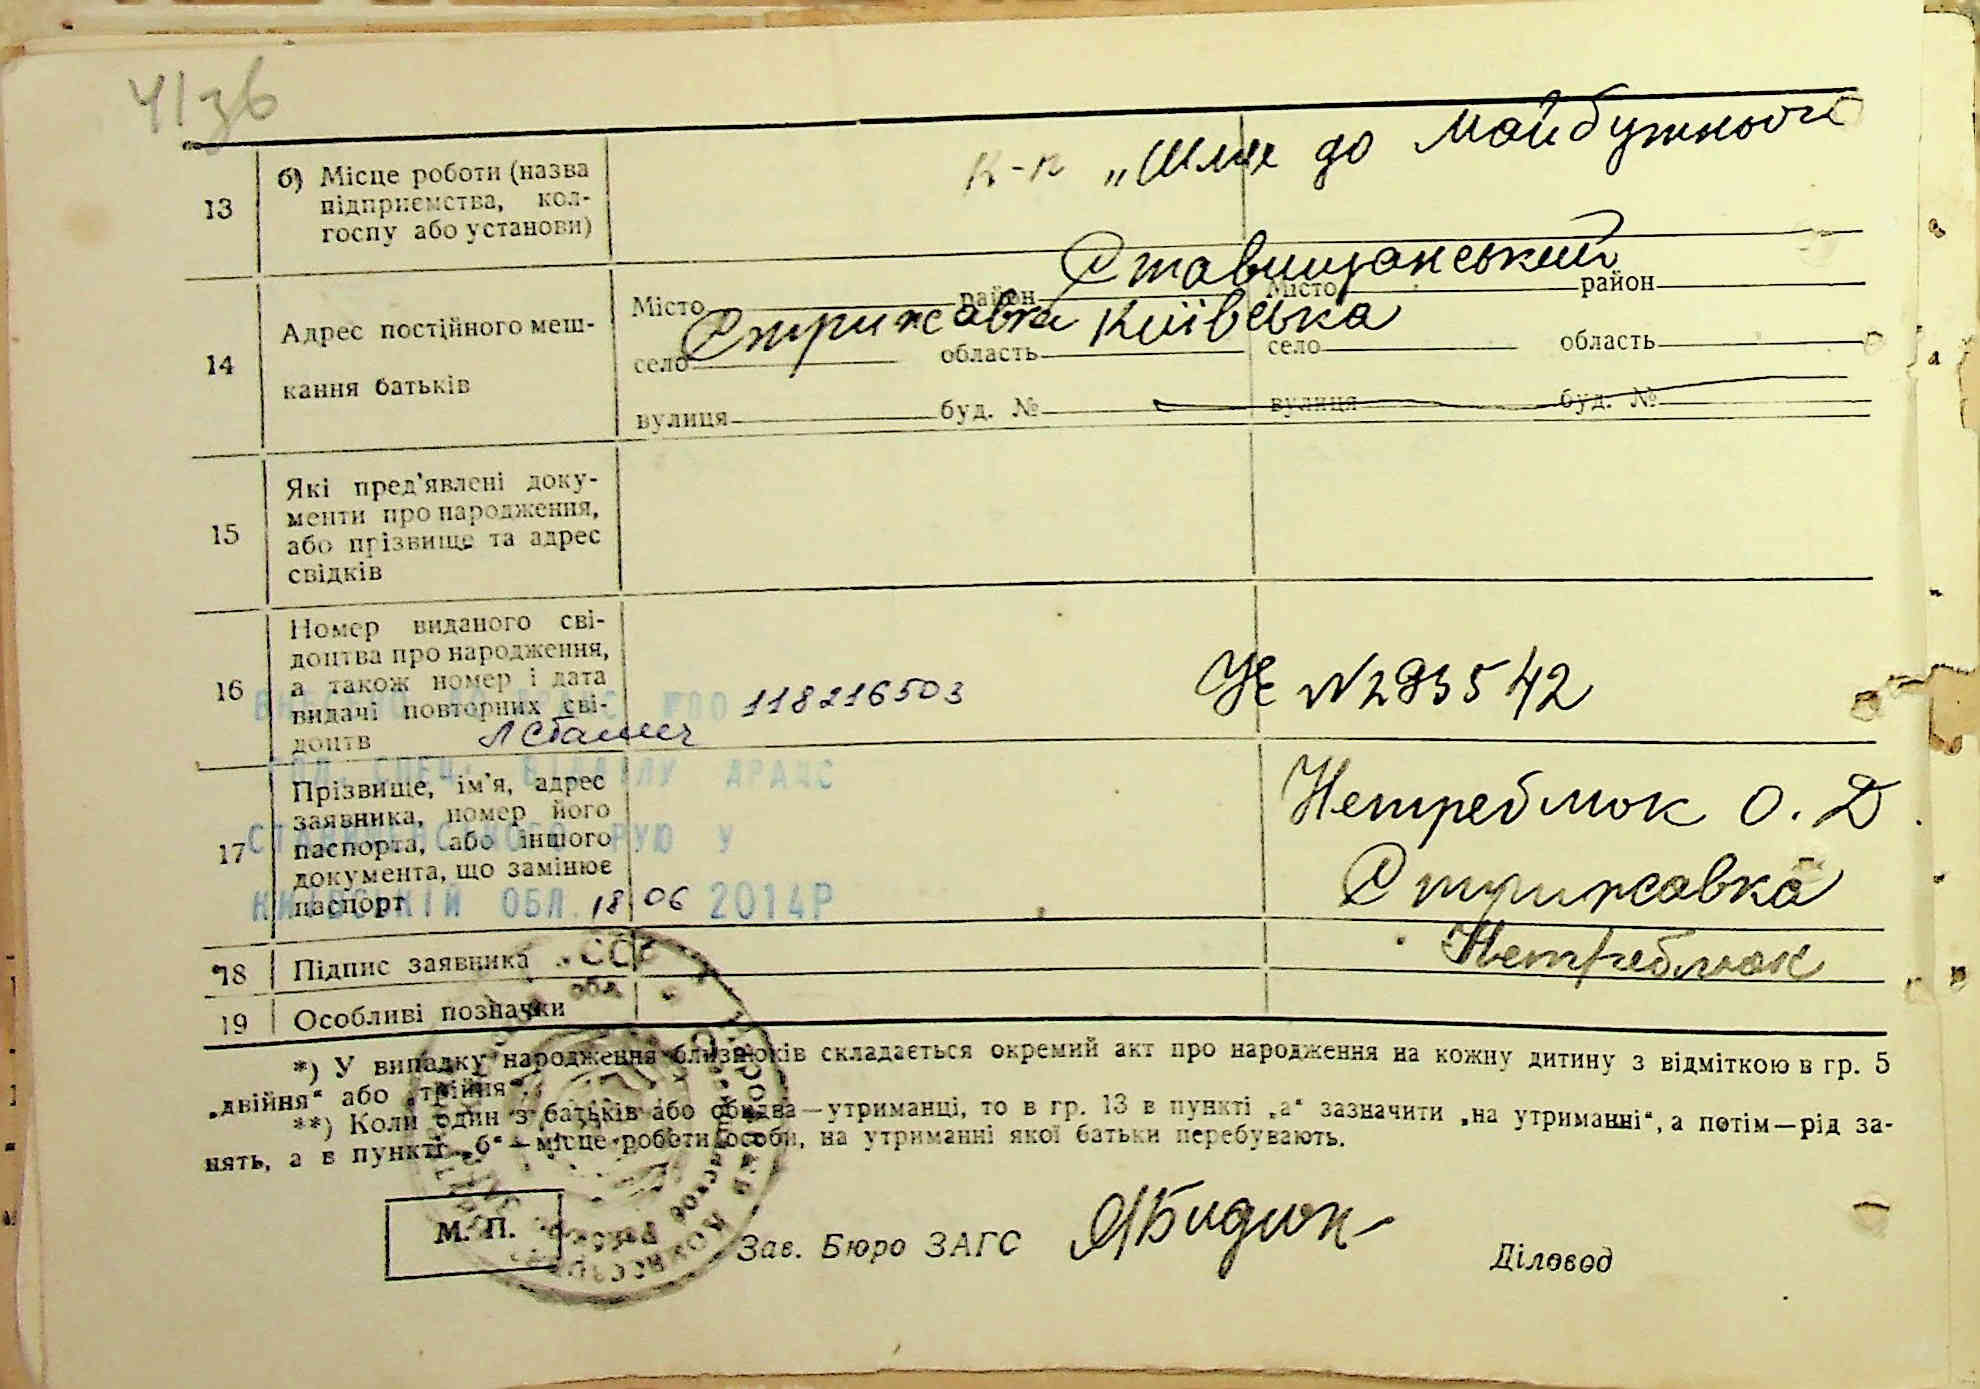 13
б) Місце роботи (назва
підприємства, кол-
госпу або установи)
к-п „Шлях до Майбутнього
14
Адрес постійного меш-
кання батьків
Ставищанський
Місто район Місто район
Стрижавка Київська
село область село область
вулиця буд. № вулиця буд. №
15
Які пред'явлені доку-
менти про народження,
або прізвище та адрес
свідків
16
Номер виданого сві-
доцтва про народження,
а також номер і дата
видачі повторних сві-
доцтв
118216503
№293542
17
Прізвище, ім'я, адрес
заявника, номер його
паспорта, або іншого
документа, що замінює
паспорт
ГОЛ. СПЕЦ. ВІДДІЛУ ДРАЦС
СТАВИЩЕНСЬКОГО РУЮ У
КИЇВСЬКІЙ ОБЛ. 18 06 2014Р
Нетреблюк О. Д
Стрижавка
18 Підпис заявника
Нетреблюк
19 Особливі позначки
*) У випадку народження близнюків складається окремий акт про народження на кожну дитину з відміткою в гр. 5
„двійня“ або „трійня“.
**) Коли один з батьків або обидва—утриманці, то в гр. 13 в пункті „а“ зазначити „на утриманні“, а потім—рід за-
нять, а в пункті „б“—місце роботи особи, на утриманні якої батьки перебувають.
М. П.
Зав. Бюро ЗАГС
Діловод